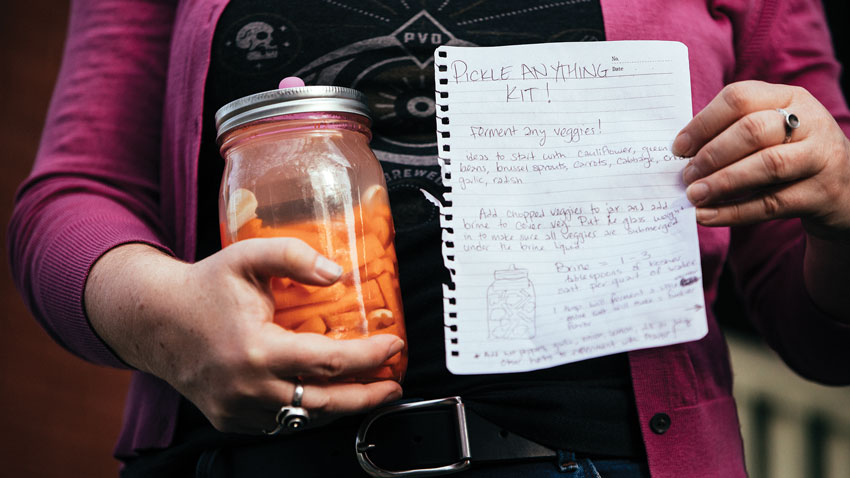 PVD
BREWER
No.
Date
PICKLE ANYTHING
KIT!
Ferment any veggies!
Ideas to start with cauliflower, green
beans, brussel sprouts, carrots, cabbage,
garlic, radish
Add chopped veggies to jar and add
brine to cover veg. Put glass weight
in to make sure all veggies are submerged
under the brine liquid
Brine = 1 - 3
tablespoons of
salt per quart of water
will ferment a
salt will make a
flavor
* Add
other to experiment with